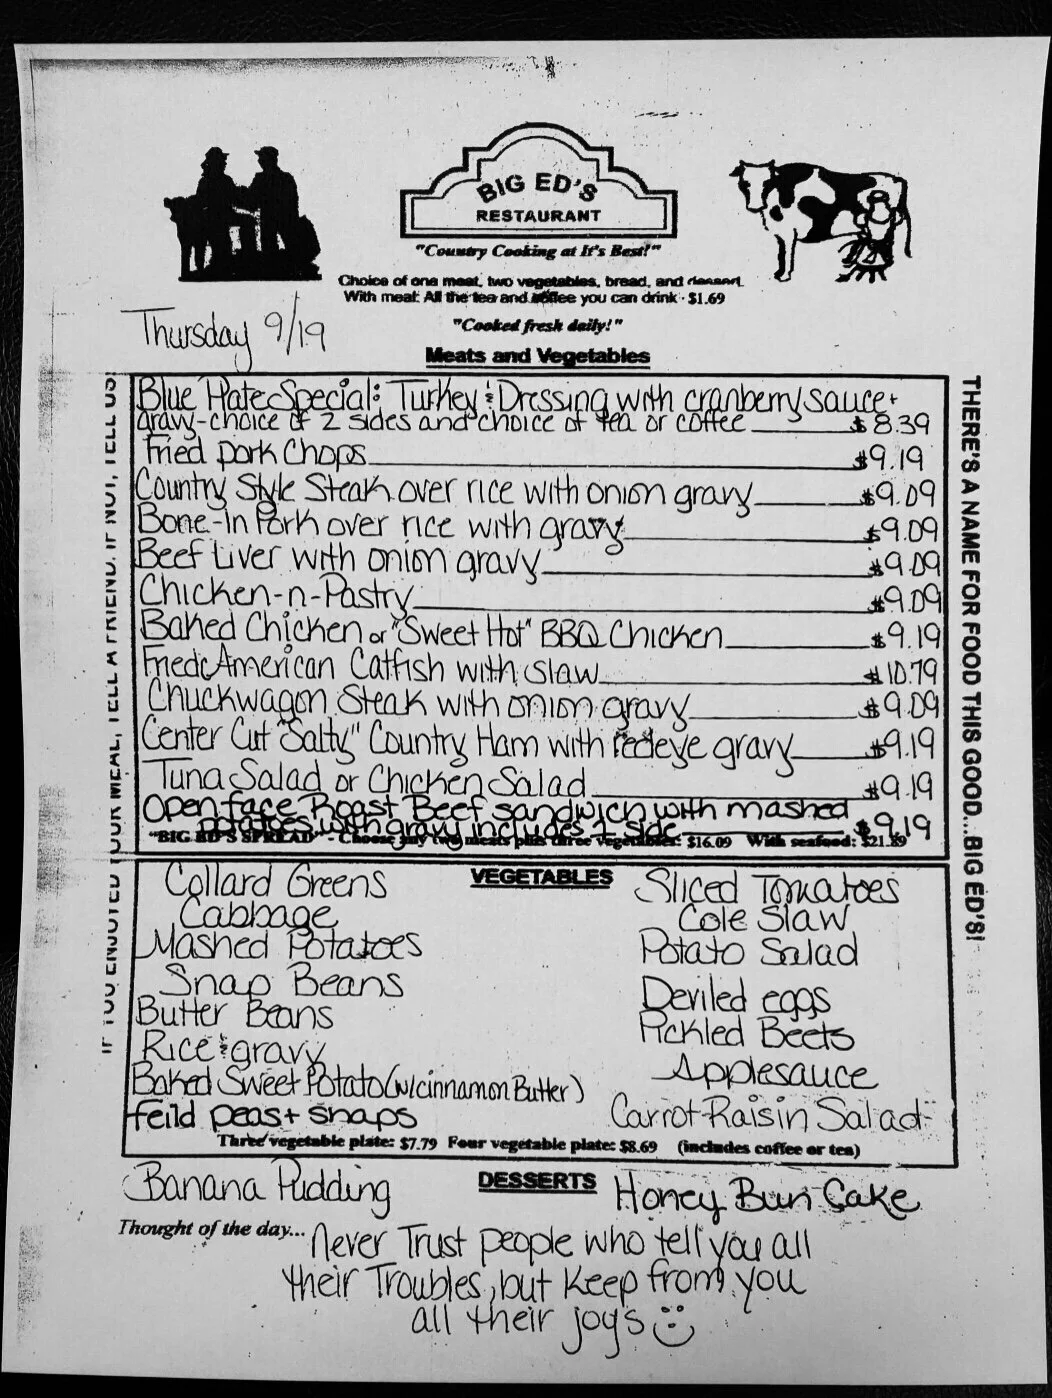 BIG ED'S
RESTAURANT
"Country Cooking at It's Best!"
Choice of one meat, two vegetables, bread, and dessert.
With meat: All the tea and coffee you can drink - $1.69
"Cooked fresh daily!"
Thursday 9/19
Meats and Vegetables
Blue Plate Special: Turkey & Dressing with cranberry sauce +
gravy-choice of 2 sides and choice of tea or coffee $8.39
Fried pork Chops $9.19
Country Style Steak over rice with onion gravy $9.09
Bone-In Pork over rice with gravy $9.09
Beef Liver with onion gravy $9.09
Chicken-n-Pastry $9.09
Baked Chicken or "Sweet Hot" BBQ Chicken $9.19
Fried American Catfish with slaw $10.79
Chuckwagon Steak with onion gravy $9.09
Center Cut "Salty" Country Ham with redeye gravy $9.19
Tuna Salad or Chicken Salad $9.19
Open face Roast Beef sandwich with mashed
potatoes with gravy includes 1 side $9.19
"BIG ED'S SPREAD" - Choose any two meats plus three vegetables: $16.09 With seafood: $21.89
VEGETABLES
Collard Greens
Cabbage
Mashed Potatoes
Snap Beans
Butter Beans
Rice & gravy
Baked Sweet Potato (w/cinnamon Butter)
feild peas + snaps
Sliced Tomatoes
Cole Slaw
Potato Salad
Deviled eggs
Pickled Beets
Applesauce
Carrot-Raisin Salad
Three vegetable plate: $7.79 Four vegetable plate: $8.69 (includes coffee or tea)
DESSERTS
Banana Pudding
Honey Bun Cake
Thought of the day...
Never Trust people who tell you all
their Troubles, but keep from you
all their joys
IF YOU ENJOYED YOUR MEAL, TELL A FRIEND. IF NOT, TELL US!
THERE'S A NAME FOR FOOD THIS GOOD...BIG ED'S!